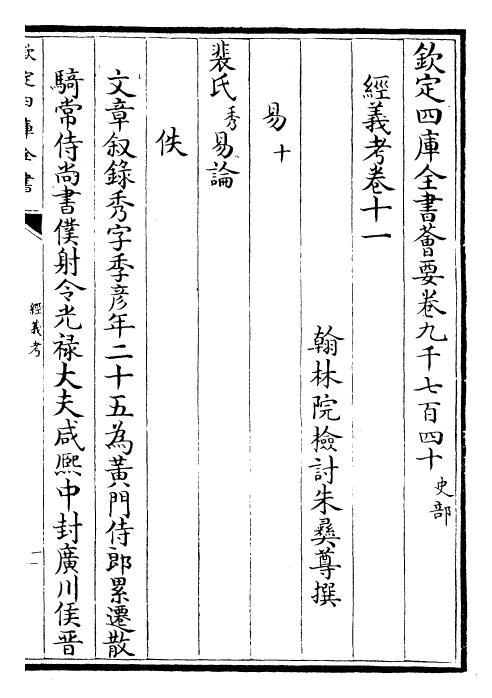 欽定四庫全書薈要卷九千七百四十 史部
經義考卷十一
翰林院檢討朱彝尊撰
易十
裴氏秀易論
佚
文章叙錄秀字季彦年二十五為黃門侍郎累遷散
騎常侍尚書僕射令光禄大夫咸熙中封廣川侯晋
欽定四庫全書
經義考
一